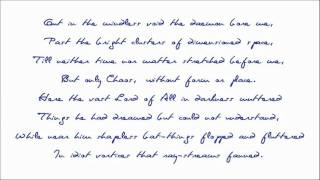 Out in the mindless void the daemon bore me,
Past the bright clusters of dimensioned space,
Till neither time nor matter stretched before me,
But only Chaos, without form or place.
Here the vast Lord of All in darkness muttered
Things he had dreamed but could not understand,
While near him shapeless bat-things flopped and fluttered
In idiot vortices that ray-streams fanned.